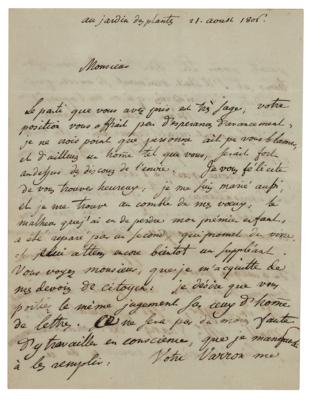 au jardin des plantes 21. aoust 1806.
Monsieur
Le parti que vous avez pris est très sage, votre
position vous offrait peu d'espérance d'avancement,
je ne crois point que personne ait pu vous blamer,
et d'ailleurs un home tel que vous, serait fort
audessus des discours de l'envie. Je vous félicite
de vous trouver heureux; je me suis marié aussi
et je me trouve au comble de mes vœux; le
malheur que j'ai eu de perdre mon premier enfant,
a été reparé par un second, qui promet de vivre
et j'en attens encore bientot un suppléant.
Vous voyez monsieur, que je m'acquitte de
mes devoirs de citoyen. je désire que vous
portiez le même jugement sur ceux d'home
de lettres. Ce ne sera pas du moins faute
d'y travailler en conscience, que je manquerai
à les remplir. Votre Varron me